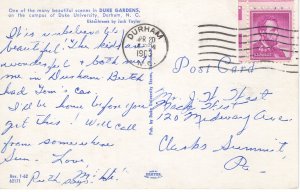 One of the many beautiful scenes in DUKE GARDENS,
on the campus of Duke University, Durham, N. C.
Ektachrome by Jack Taylor
It is unbelievably
beautiful! The kids are
wonderful & both met
me in Durham Butch
had Tom's car.
I'll be home before you
get this! Will call
from somewhere
Sun - Love
Ruth says "Hi"
Rev. 1-62
62171
DURHAM
APR 20
1963
N.C.
Post Card
Mr. J. H. Hirst
120 Midway Ave
Clarks Summit,
Pa.
DEXTER